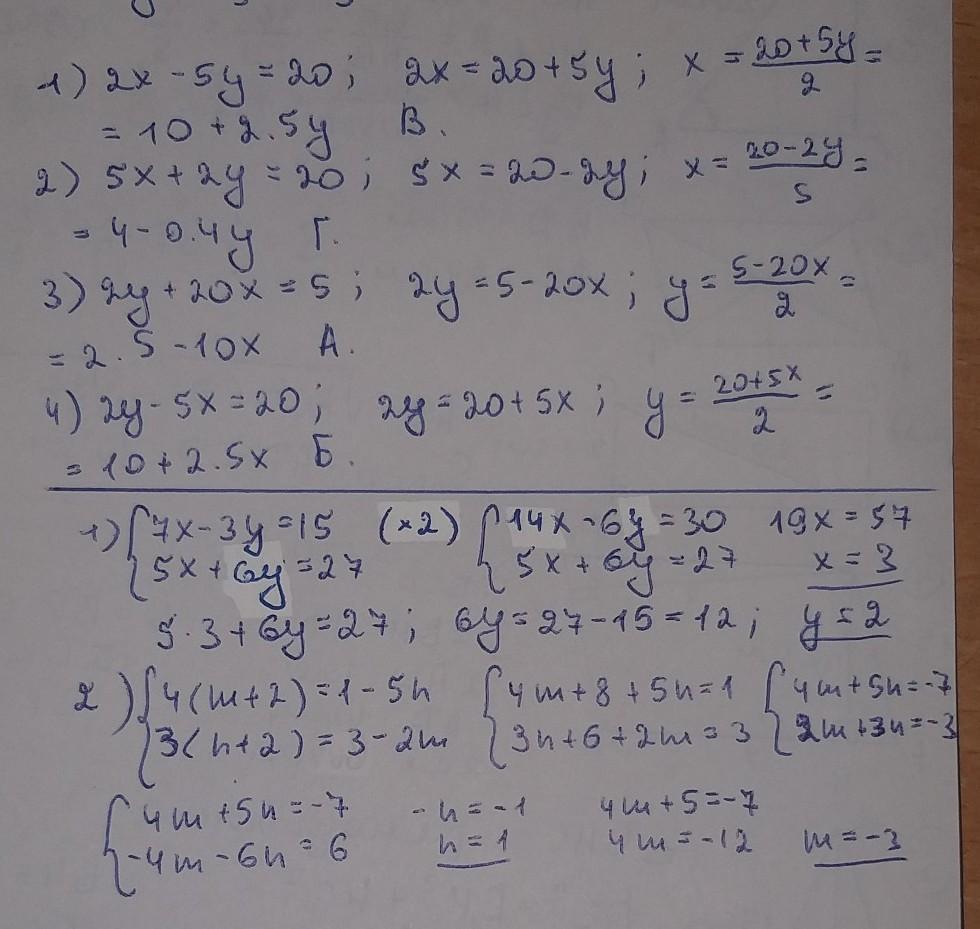 1) 2x - 5y = 20; 2x = 20 + 5y; x = \frac{20+5y}{2} =
= 10 + 2.5y В.
2) 5x + 2y = 20; 5x = 20 - 2y; x = \frac{20-2y}{5} =
= 4 - 0.4y Г.
3) 2y + 20x = 5; 2y = 5 - 20x; y = \frac{5-20x}{2} =
= 2.5 - 10x А.
4) 2y - 5x = 20; 2y = 20 + 5x; y = \frac{20+5x}{2} =
= 10 + 2.5x Б.
1) { 7x - 3y = 15 (×2) { 14x - 6y = 30 19x = 57
5x + 6y = 27 5x + 6y = 27 x = 3
5·3 + 6y = 27; 6y = 27 - 15 = 12; y = 2
2) { 4(m+2) = 1 - 5n { 4m + 8 + 5n = 1 { 4m + 5n = -7
3(n+2) = 3 - 2m 3n + 6 + 2m = 3 2m + 3n = -3
{ 4m + 5n = -7 -n = -1 4m + 5 = -7
-4m - 6n = 6 n = 1 4m = -12 m = -3